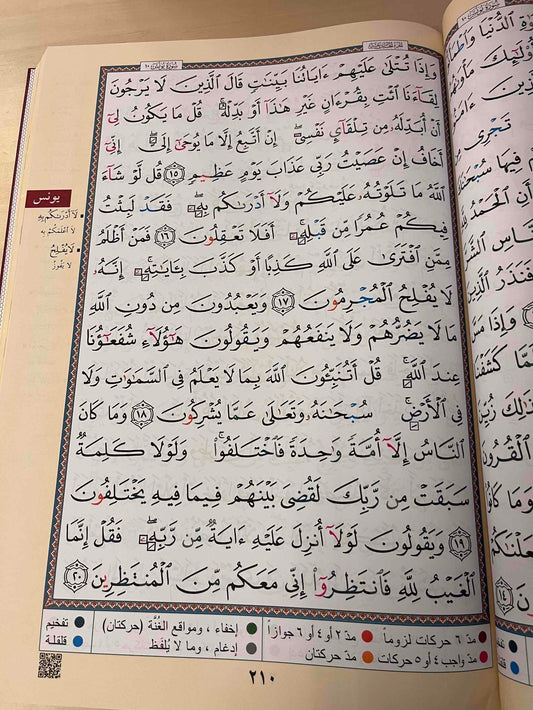 سُورَةُ يُونُسَ ١٠
وَإِذَا تُتْلَىٰ عَلَيْهِمْ ءَايَاتُنَا بَيِّنَٰتٍ قَالَ الَّذِينَ لَا يَرْجُونَ
لِقَآءَنَا ائْتِ بِقُرْءَانٍ غَيْرِ هَٰذَآ أَوْ بَدِّلْهُ ۚ قُلْ مَا يَكُونُ لِىٓ
أَنْ أُبَدِّلَهُۥ مِن تِلْقَآئِ نَفْسِىٓ ۖ إِنْ أَتَّبِعُ إِلَّا مَا يُوحَىٰٓ إِلَىَّ ۖ إِنِّىٓ
أَخَافُ إِنْ عَصَيْتُ رَبِّى عَذَابَ يَوْمٍ عَظِيمٍ ١٥ قُل لَّوْ شَآءَ
اللَّهُ مَا تَلَوْتُهُۥ عَلَيْكُمْ وَلَآ أَدْرَىٰكُم بِهِۦ ۖ فَقَدْ لَبِثْتُ
فِيكُمْ عُمُرًا مِّن قَبْلِهِۦٓ ۚ أَفَلَا تَعْقِلُونَ ١٦ فَمَنْ أَظْلَمُ
مِمَّنِ افْتَرَىٰ عَلَى اللَّهِ كَذِبًا أَوْ كَذَّبَ بِـَٔايَٰتِهِۦٓ ۚ إِنَّهُۥ
لَا يُفْلِحُ الْمُجْرِمُونَ ١٧ وَيَعْبُدُونَ مِن دُونِ اللَّهِ
مَا لَا يَضُرُّهُمْ وَلَا يَنفَعُهُمْ وَيَقُولُونَ هَٰٓؤُلَآءِ شُفَعَٰٓؤُنَا
عِندَ اللَّهِ ۚ قُلْ أَتُنَبِّـُٔونَ اللَّهَ بِمَا لَا يَعْلَمُ فِى السَّمَٰوَٰتِ وَلَا
فِى الْأَرْضِ ۚ سُبْحَٰنَهُۥ وَتَعَٰلَىٰ عَمَّا يُشْرِكُونَ ١٨ وَمَا كَانَ
النَّاسُ إِلَّآ أُمَّةً وَٰحِدَةً فَاخْتَلَفُوا۟ ۚ وَلَوْلَا كَلِمَةٌ
سَبَقَتْ مِن رَّبِّكَ لَقُضِىَ بَيْنَهُمْ فِيمَا فِيهِ يَخْتَلِفُونَ
١٩ وَيَقُولُونَ لَوْلَآ أُنزِلَ عَلَيْهِ ءَايَةٌ مِّن رَّبِّهِۦ ۖ فَقُلْ إِنَّمَا
الْغَيْبُ لِلَّهِ فَانتَظِرُوٓا۟ إِنِّى مَعَكُم مِّنَ الْمُنتَظِرِينَ ٢٠
يونس
لَآ أَدْرَىٰكُم بِهِ
لا أعلمكم به
لَا يُفْلِحُ
لا يفوز
مدّ ٦ حركات لزوماً
مدّ ٢ أو ٤ أو ٦ جوازاً
إخفاء ، ومواقع الغُنَّة (حركتان)
تفخيم
مدّ واجب ٤ أو ٥ حركات
مدّ حركتان
إدغام ، وما لا يُلفَظ
قلقلة
٢١٠